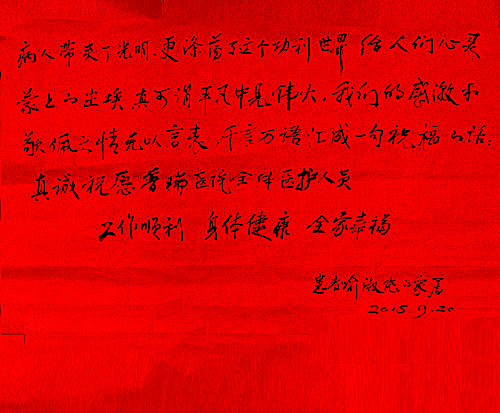 病人带来了光明,更涤荡了这个功利世界给人们心灵
蒙上的尘埃,真可谓平凡中见伟大,我们的感激和
敬佩之情无以言表,千言万语汇成一句祝福的话:
真诚祝愿普瑞医院全体医护人员
工作顺利 身体健康 全家幸福
患者喻淑 家属
2015.9.20